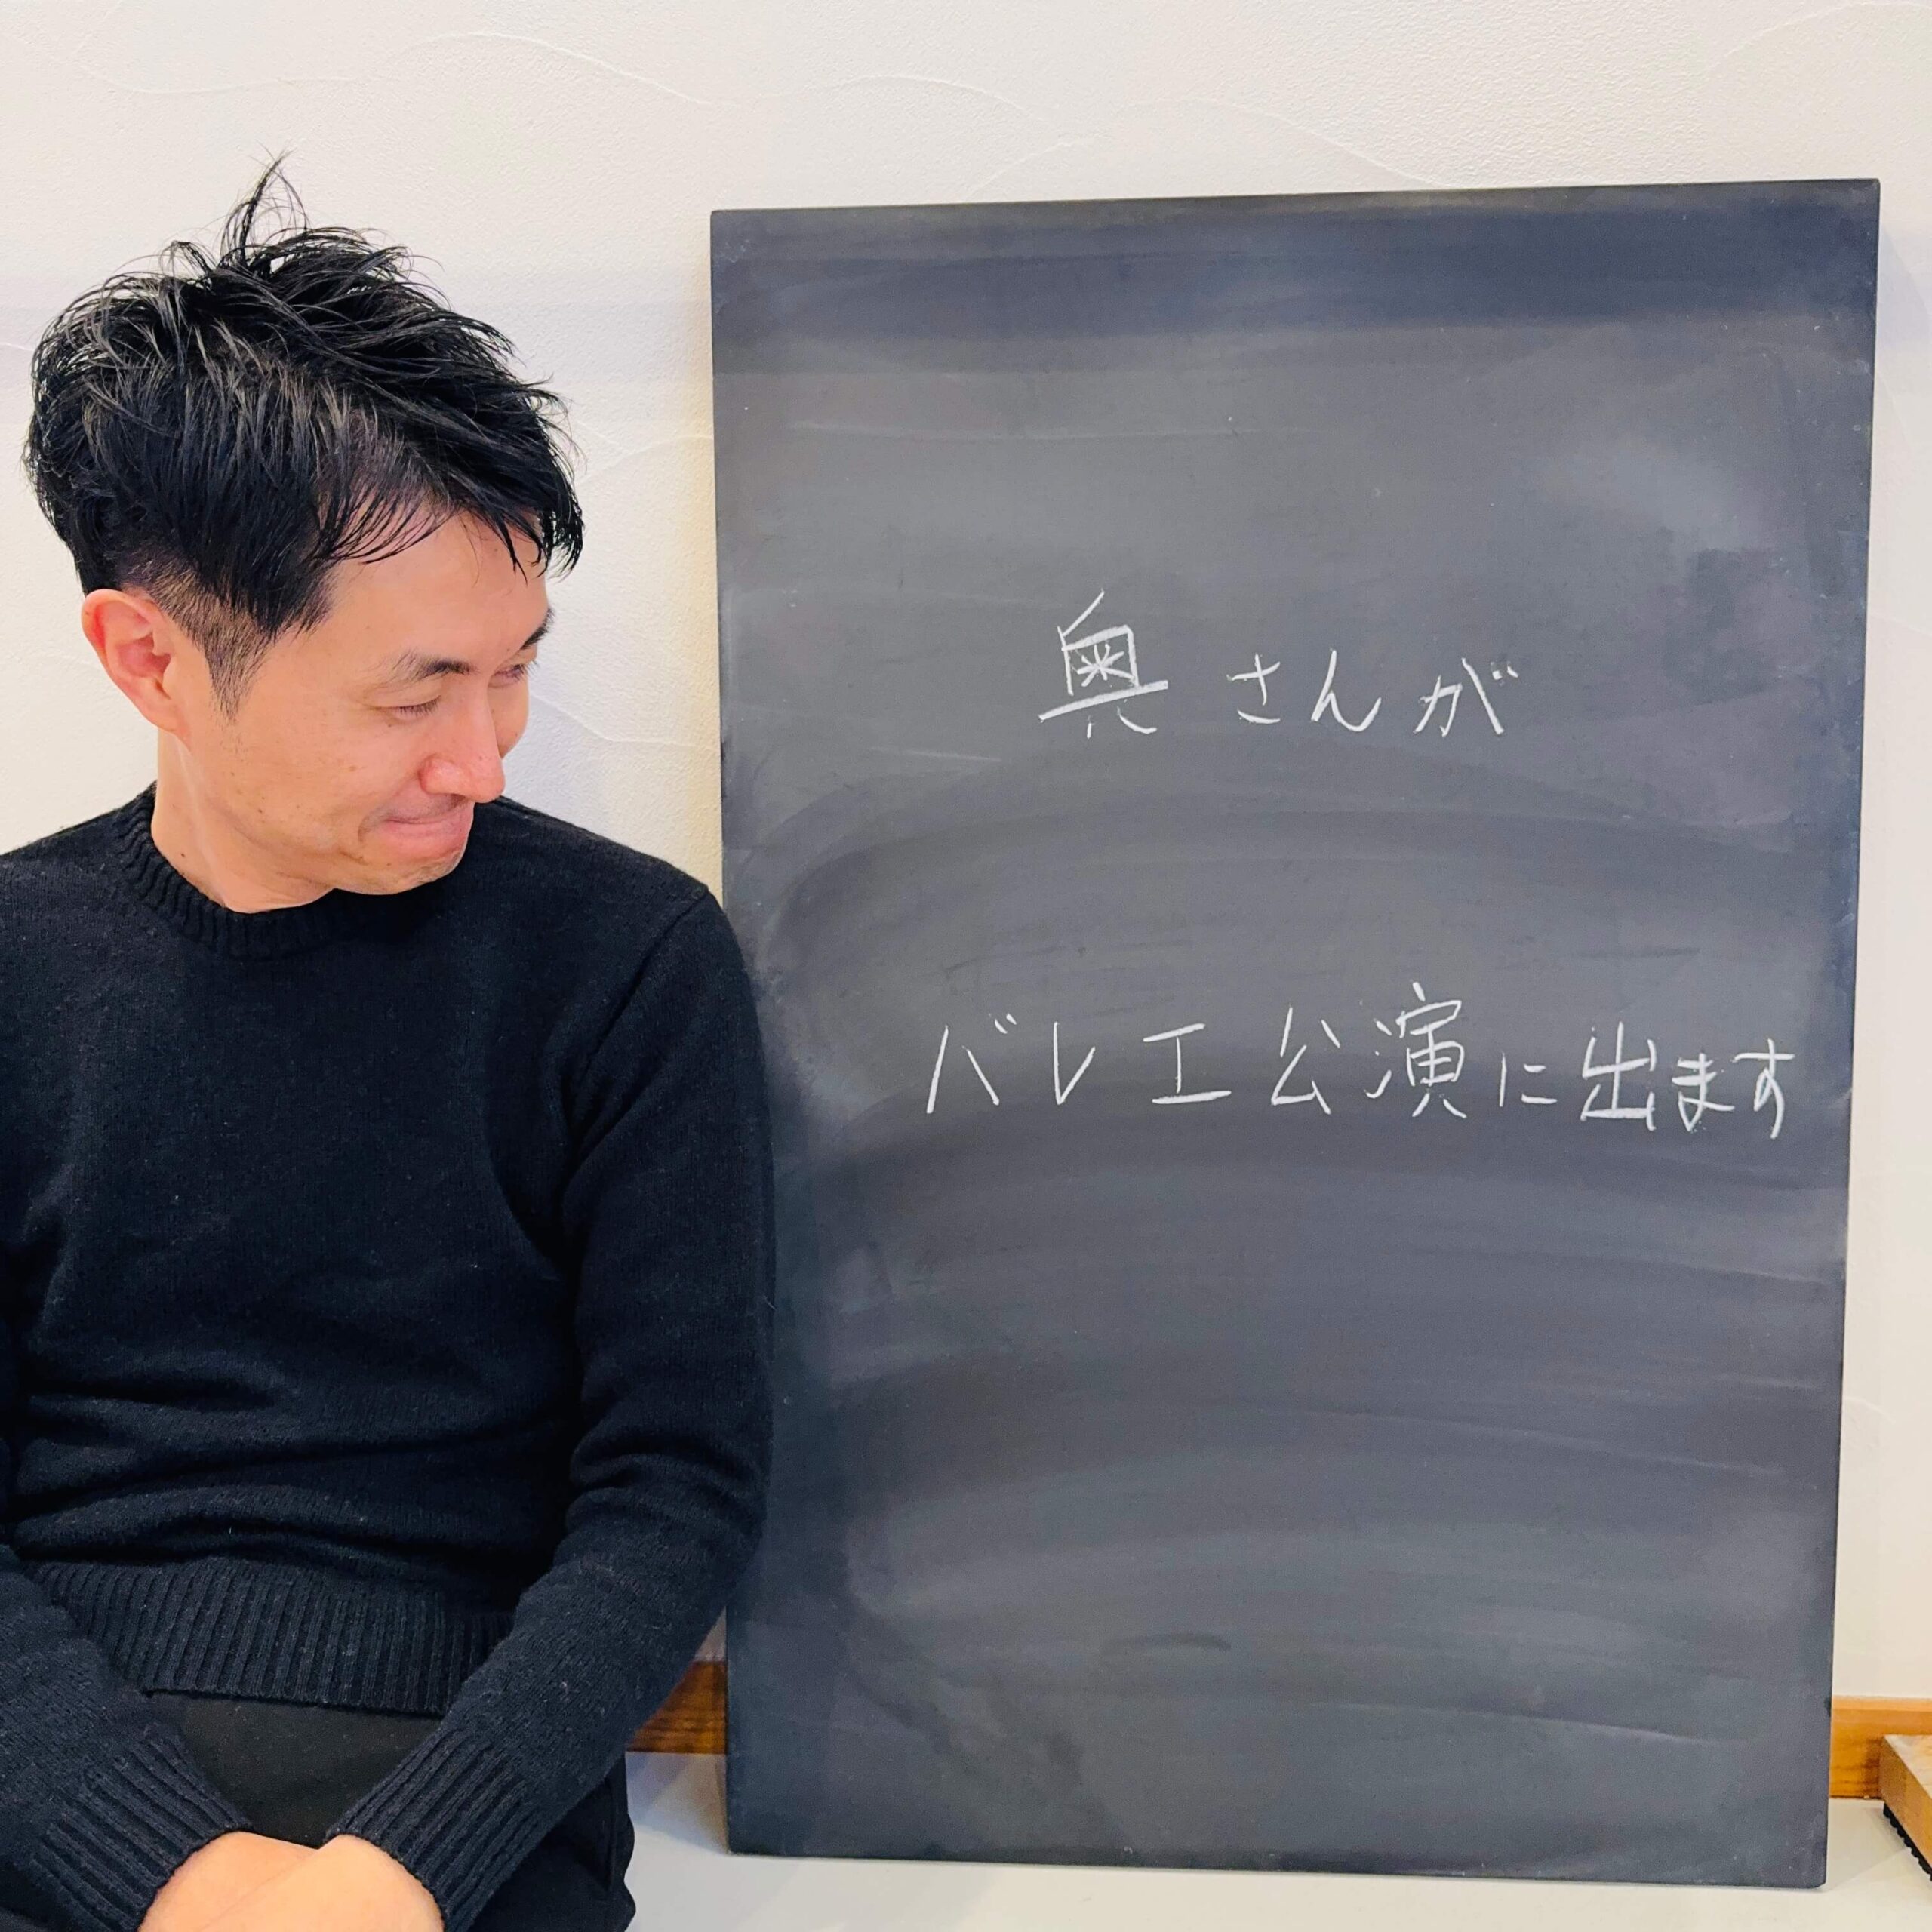 奥さんが
バレエ公演に出ます